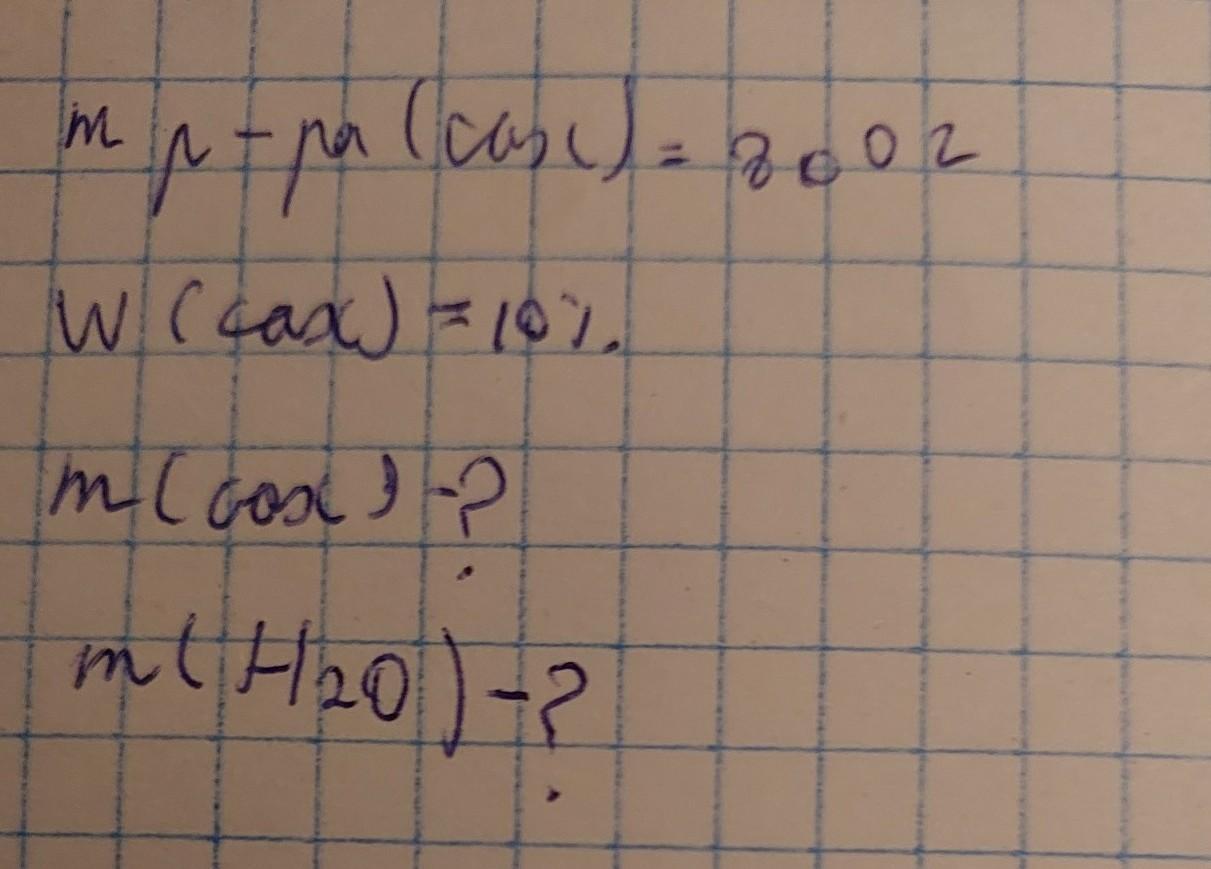 m р-ра (сах) = 800г
W (сах) = 10%.
m (сах) - ?
m (H2O) - ?